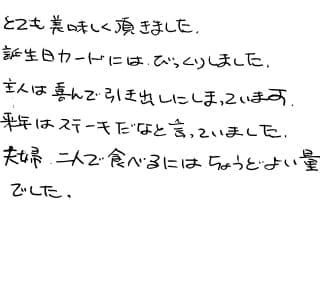 とても美味しく頂きました.
誕生日カードには.びっくりしました.
主人は喜んで引き出しにしまっています.
来年はステーキだなと言っていました.
夫婦.二人で食べるにはちょうどよい量
でした.